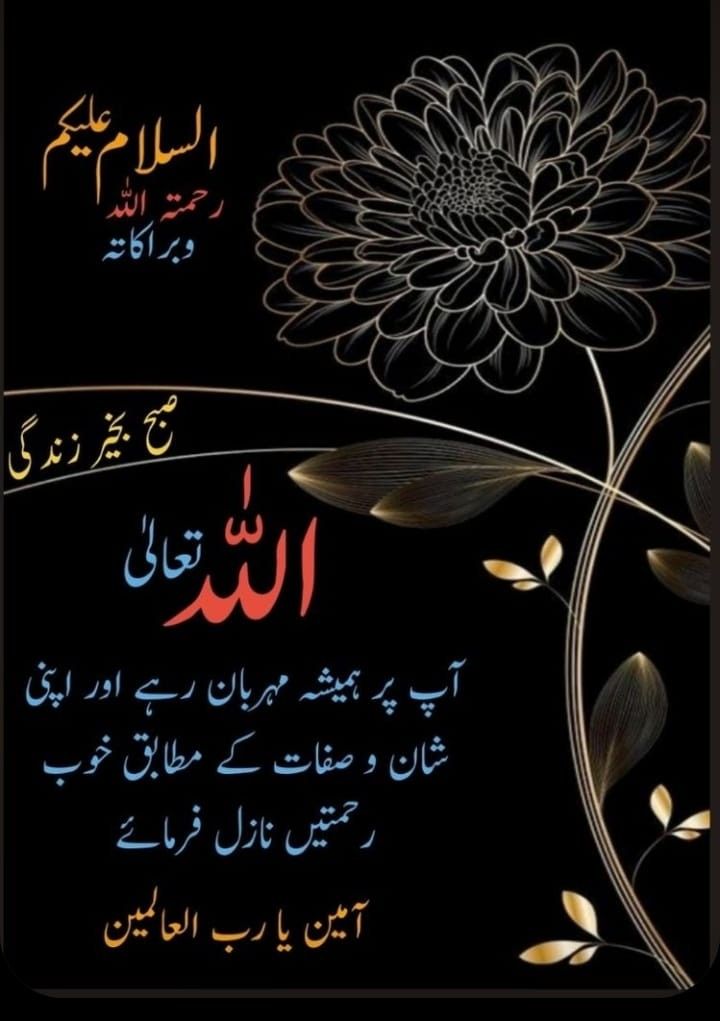 السلام علیکم
رحمتہ اللہ
وبراکاتہ
صبح بخیر زندگی
اللہ تعالیٰ
آپ پر ہمیشہ مہربان رہے اور اپنی
شان و صفات کے مطابق خوب
رحمتیں نازل فرمائے
آمین یا رب العالمین